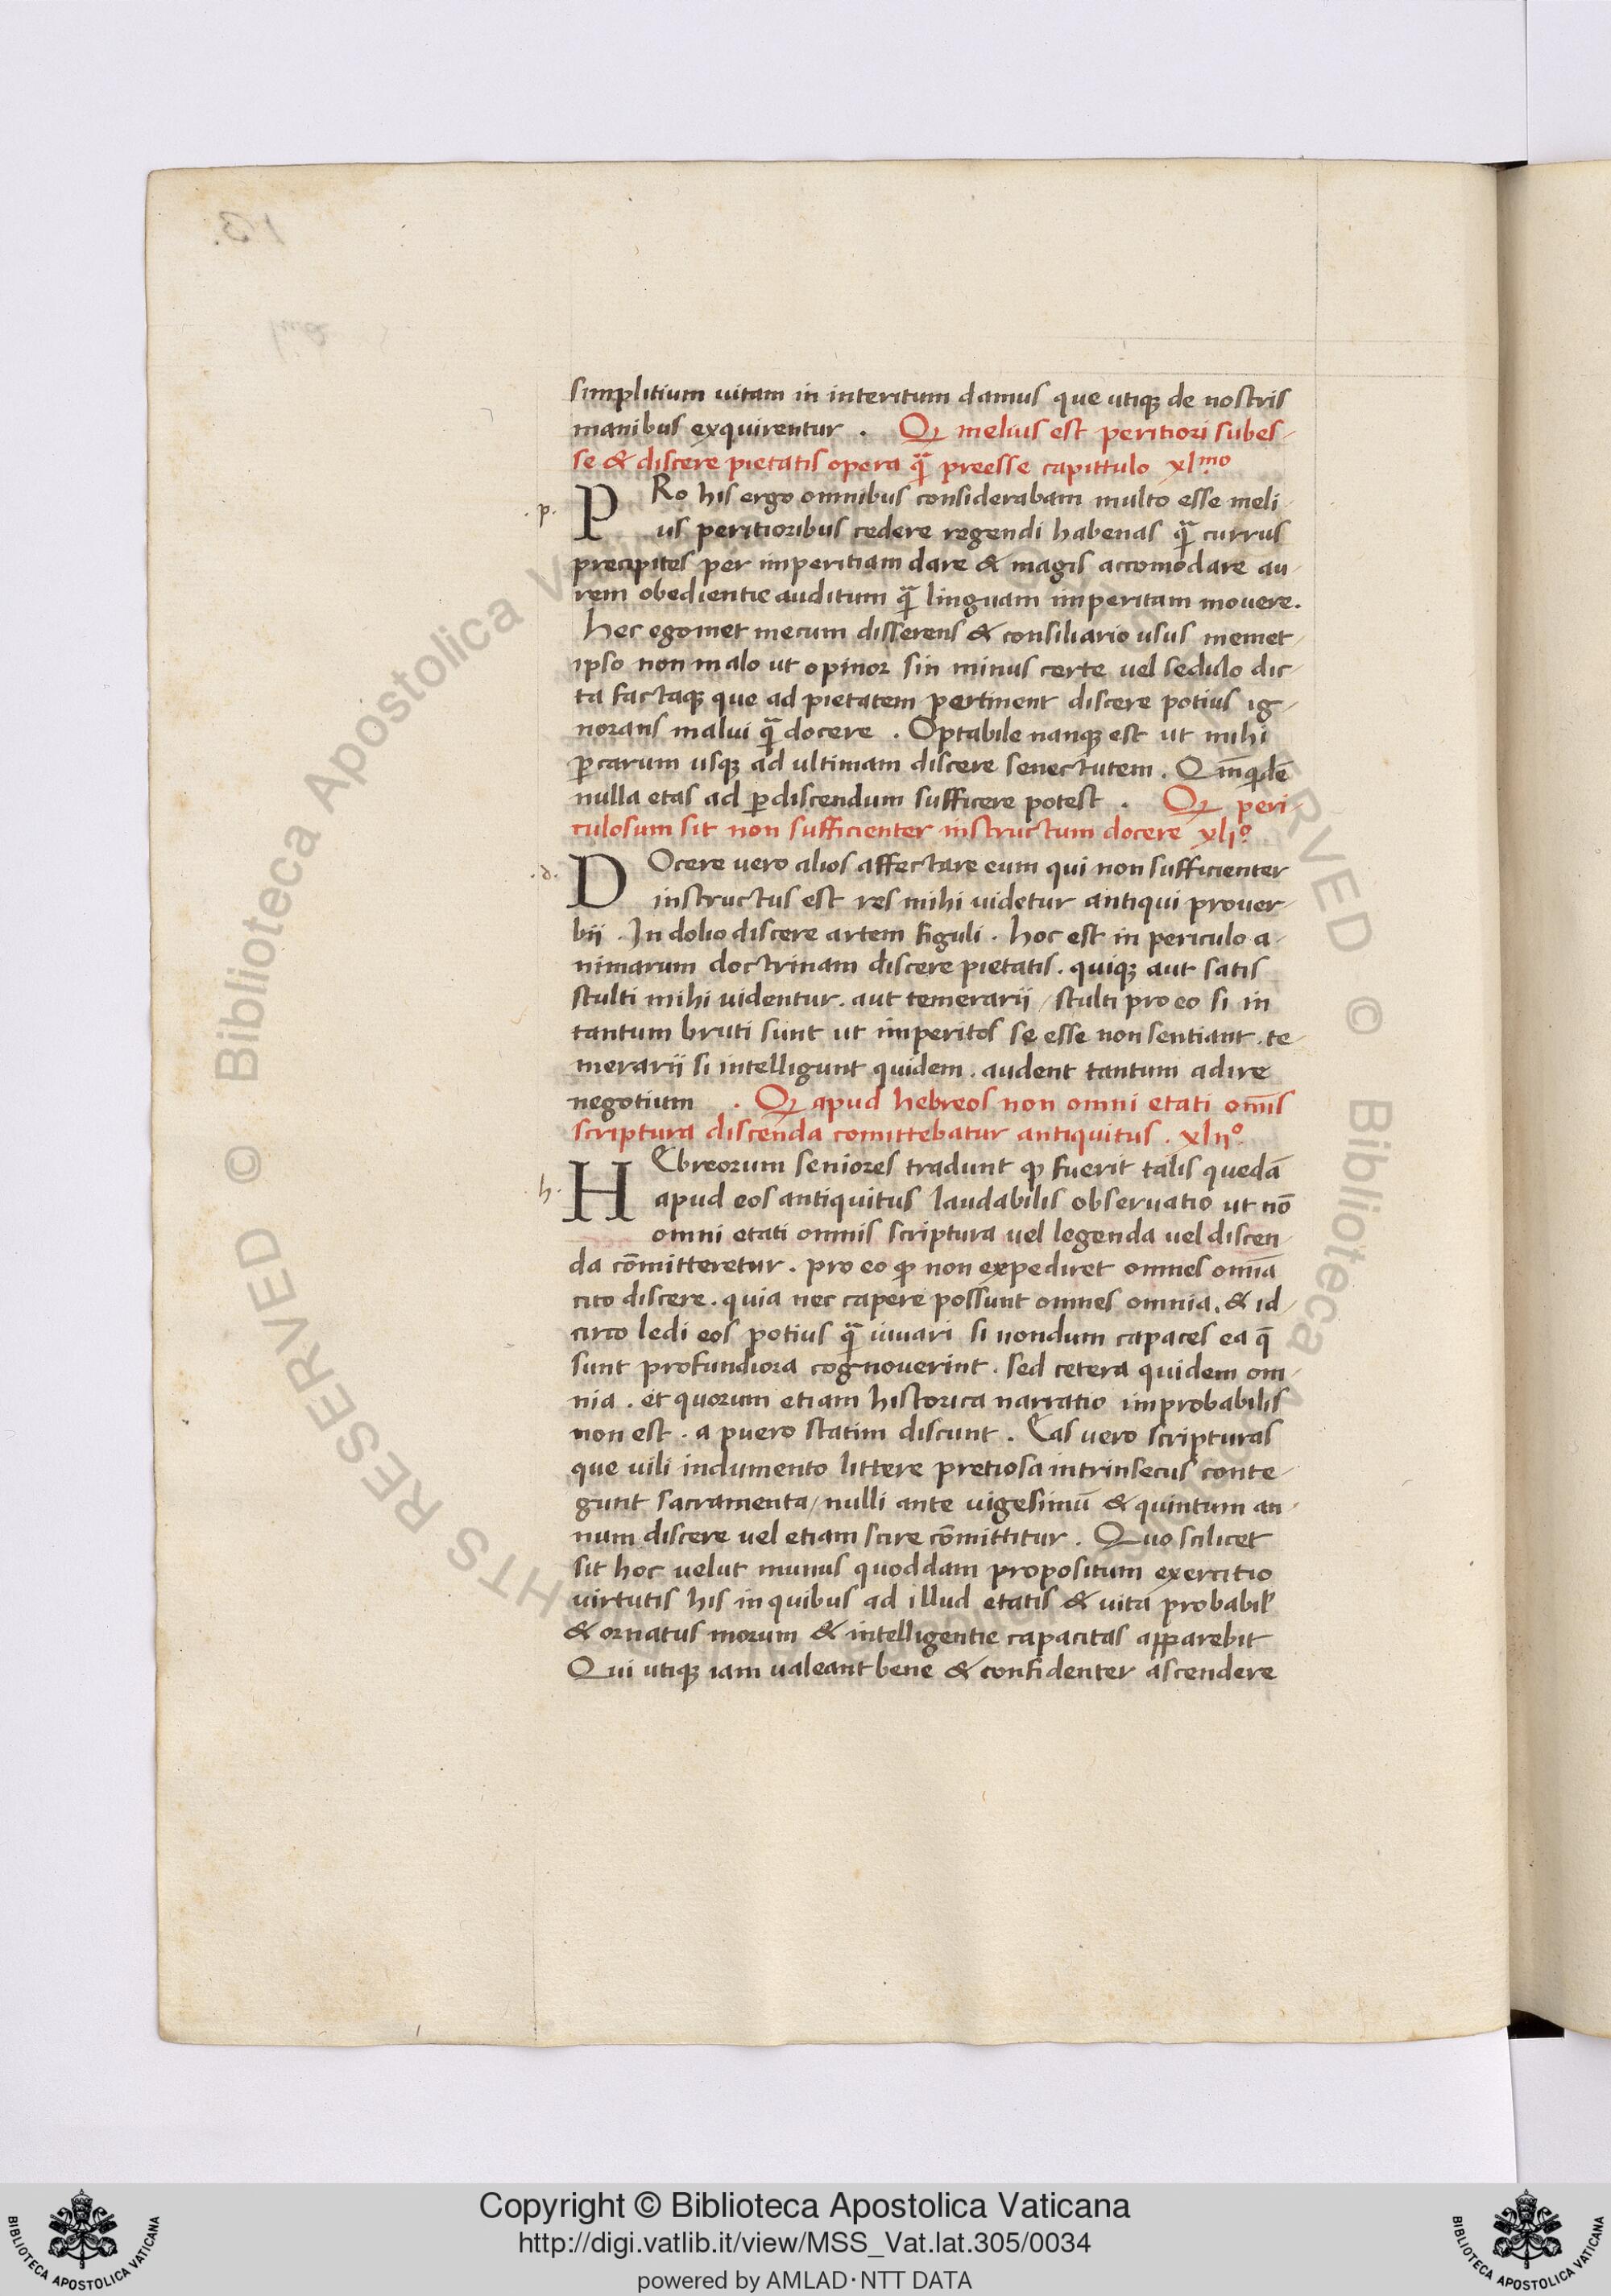 simplitium uitam in interitum damus que utiqꝫ de nostris
manibus exquirentur . Qꝫ melius est peritiori subes-
se & discere pietatis opera qͣꝫ preesse capittulo xlᵐᵒ
.p. PRo his ergo omnibus considerabam multo esse meli-
us peritioribus cedere regendi habenas qͣꝫ currus
precipites per imperitiam dare & magis accomodare au-
rem obedientie auditum qͣꝫ linguam imperitam mouere.
hec egomet mecum disserens & consiliario usus memet-
ipso non malo ut opinor sin minus certe uel sedulo dic-
ta factaqꝫ que ad pietatem pertinent discere potius ig-
norans malui qͣꝫ docere . Optabile nanqꝫ est ut mihi
ꝑcarum usqꝫ ad ultimam discere senectutem .
nulla etas ad ꝑdiscendum sufficere potest . Qꝫ peri-
culosum sit non sufficienter instructum docere xliº
.d. DOcere uero alios affectare eum qui non sufficienter
instructus est res mihi uidetur antiqui prouer-
bii . In dolio discere artem figuli . hoc est in periculo a-
nimarum doctrinam discere pietatis . quiqꝫ aut satis
stulti mihi uidentur . aut temerarii / stulti pro eo si in
tantum bruti sunt ut imperitos se esse non sentiant . te-
merarii si intelligunt quidem . audent tantum adire
negotium . Qꝫ apud hebreos non omni etati om̄is
scriptura discenda comittebatur antiquitus . xliiº
.h. HEbreorum seniores tradunt qꝫ fuerit talis quedā
apud eos antiquitus laudabilis obseruatio ut nō
omni etati omnis scriptura uel legenda uel discen-
da cōmitteretur . pro eo qꝫ non expediret omnes om̄ia
cito discere . quia nec capere possunt omnes omnia . & id-
circo ledi eos potius qͣꝫ iuuari si nondum capaces ea q̄
sunt profundiora cognouerint . sed cetera quidem om-
nia . et quorum etiam historica narratio improbabilis
non est . a puero statim discunt . Eas uero scripturas
que uili indumento littere pretiosa intrinsecus conte-
gunt sacramenta / nulli ante uigesimū & quintum an-
num discere uel etiam scire cōmittitur . Quo scilicet
sit hoc uelut munus quoddam propositum exercitio
uirtutis his in quibus ad illud etatis & uita probabil̓
& ornatus morum & intelligentie capacitas apparebit
Qui utiqꝫ iam ualeant bene & confidenter ascendere
Copyright © Biblioteca Apostolica Vaticana
http://digi.vatlib.it/view/MSS_Vat.lat.305/0034
powered by AMLAD·NTT DATA